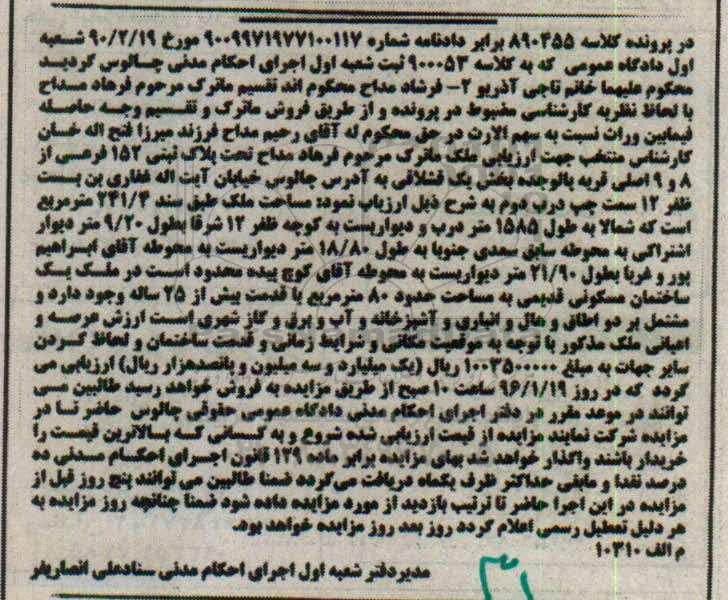 در پرونده کلاسه ۸۹۰۴۵۵ برابر دادنامه شماره ۹۰۰۹۹۷۱۹۷۷۱۰۰۱۱۷ مورخ ۹۰/۲/۱۹ شعبه
اول دادگاه عمومی که به کلاسه ۹۰۰۰۵۳ ثبت شعبه اول اجرای احکام مدنی چالوس گردید
محکوم علیهما خانم تاجی آذریو ۲- فرشاد مداح محکوم اند تقسیم ماترک مرحوم فرهاد مداح
با لحاظ نظریه کارشناسی مضبوط در پرونده و از طریق فروش ماترک و تقسیم وجه حاصله
فیمابین وراث نسبت به سهم الارث در حق محکوم له آقای رحیم مداح فرزند میرزا فتح اله خان
کارشناس منتخب جهت ارزیابی ملک ماترک مرحوم فرهاد مداح تحت پلاک ثبتی ۱۵۲ فرعی از
۸ و ۹ اصلی قریه بالوجده بخش یک قشلاقی به آدرس چالوس خیابان آیت اله غفاری بن بست
ظفر ۱۲ سمت چپ درب دوم به شرح ذیل ارزیاب نمود: مساحت ملک طبق سند ۲۴۱/۴ مترمربع
است که شمالا به طول ۱۵۸۵ متر درب و دیواریست به کوچه ظفر ۱۲ شرقا بطول ۹/۲۰ متر دیوار
اشتراکی به محوطه سابق سعدی جنوبا به طول ۱۸/۸۰ متر دیواریست به محوطه آقای ابراهیم
پور و غربا بطول ۲۱/۹۰ متر دیواریست به محوطه آقای کوچ پیده محدود است در ملک یک
ساختمان مسکونی قدیمی به مساحت حدود ۸۰ مترمربع با قدمت بیش از ۲۵ ساله وجود دارد و
مشتمل بر دو اطاق و هال و انباری و آشپزخانه و آب و برق و گاز شهری است ارزش عرصه و
اعیانی ملک مذکور با توجه به موقعیت مکانی و شرایط زمانی و قدمت ساختمان و لحاظ کردن
سایر جهات به مبلغ ۱۰۰۳۵۰۰۰۰۰ ریال (یک میلیارد و سه میلیون و پانصدهزار ریال) ارزیابی می
گردد که در روز ۹۶/۱/۱۹ ساعت ۱۰ صبح از طریق مزایده به فروش خواهد رسید طالبین می
توانند در موعد مقرر در دفتر اجرای احکام مدنی دادگاه عمومی حقوقی چالوس حاضر تا در
مزایده شرکت نمایند مزایده از قیمت ارزیابی شده شروع و به کسانی که بالاترین قیمت را
خریدار باشند واگذار خواهد شد بهای مزایده برابر ماده ۱۲۹ قانون اجرای احکام مدنی ده
درصد نقدا و مابقی حداکثر ظرف یکماه دریافت می گردد ضمنا طالبین می توانند پنج روز قبل از
مزایده در این اجرا حاضر تا ترتیب بازدید از مورد مزایده داده شود ضمنا چنانچه روز مزایده به
هر دلیل تعطیل رسمی اعلام گردد روز بعد روز مزایده خواهد بود.
م الف ۱۰۳۱۰
مدیردفتر شعبه اول اجرای احکام مدنی سنادعلی انصاریفر
۳۱